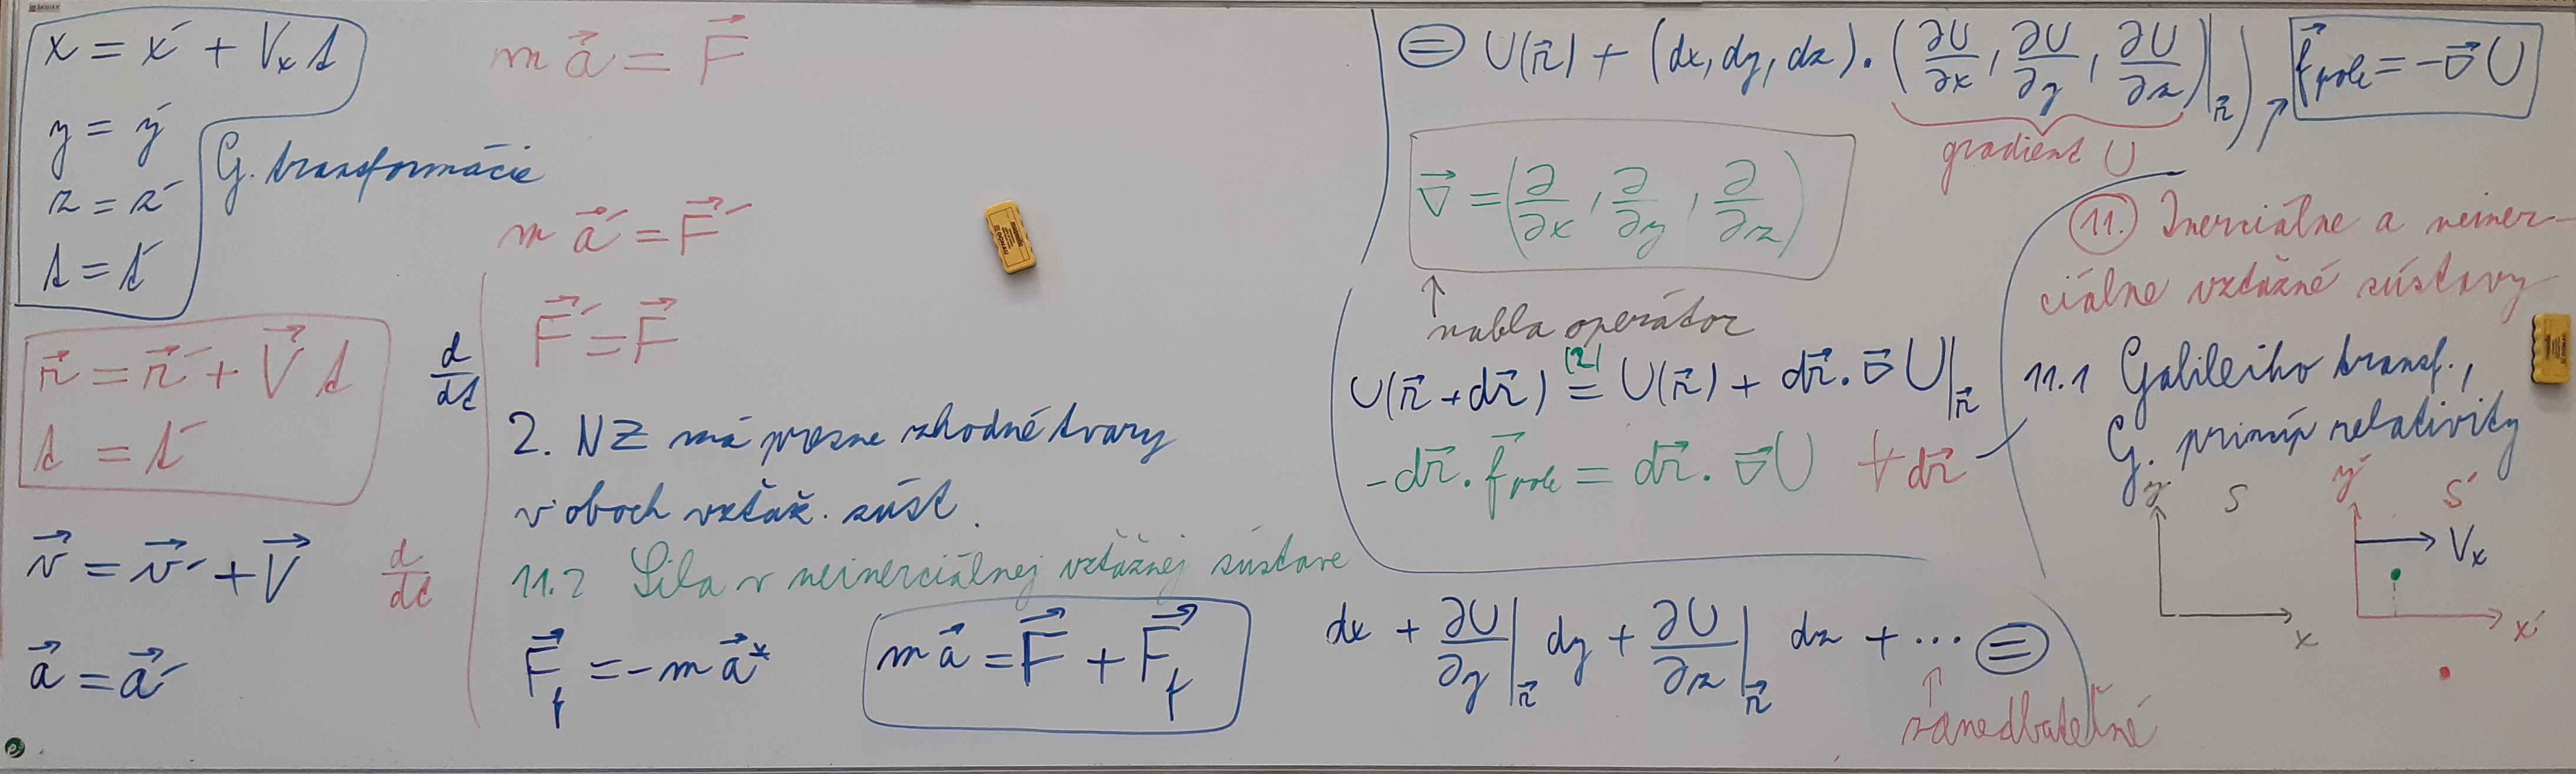 x = x´ + Vₓ t
y = y´
z = z´
t = t´
G. transformácie
r⃗ = r⃗´ + V⃗ t
t = t´
d/dt
v⃗ = v⃗´ + V⃗
d/dt
a⃗ = a⃗´
m a⃗ = F⃗
m a⃗´ = F⃗´
F⃗´ = F⃗
2. NZ má presne zhodné tvary
v oboch vzťaž. súst.
11.2 Sila v neinerciálnej vzťažnej sústave
F⃗_f = -m a⃗*
m a⃗ = F⃗ + F⃗_f
= U(r⃗) + (dx, dy, dz) . (∂U/∂x, ∂U/∂y, ∂U/∂z |r⃗)
gradient U
f⃗pole = -∇⃗U
∇⃗ = (∂/∂x, ∂/∂y, ∂/∂z)
nabla operátor
U(r⃗ + dr⃗) =(2) U(r⃗) + dr⃗ . ∇⃗U|r⃗
-dr⃗ . f⃗pole = dr⃗ . ∇⃗U ∀dr⃗
dx + ∂U/∂y|r⃗ dy + ∂U/∂z|r⃗ dz + ... =
zanedbateľné
11. Inerciálne a neiner-
ciálne vzťažné sústavy
11.1 Galileiho transf.,
G. princíp relativity
y S y´ S´
Vₓ
x x´